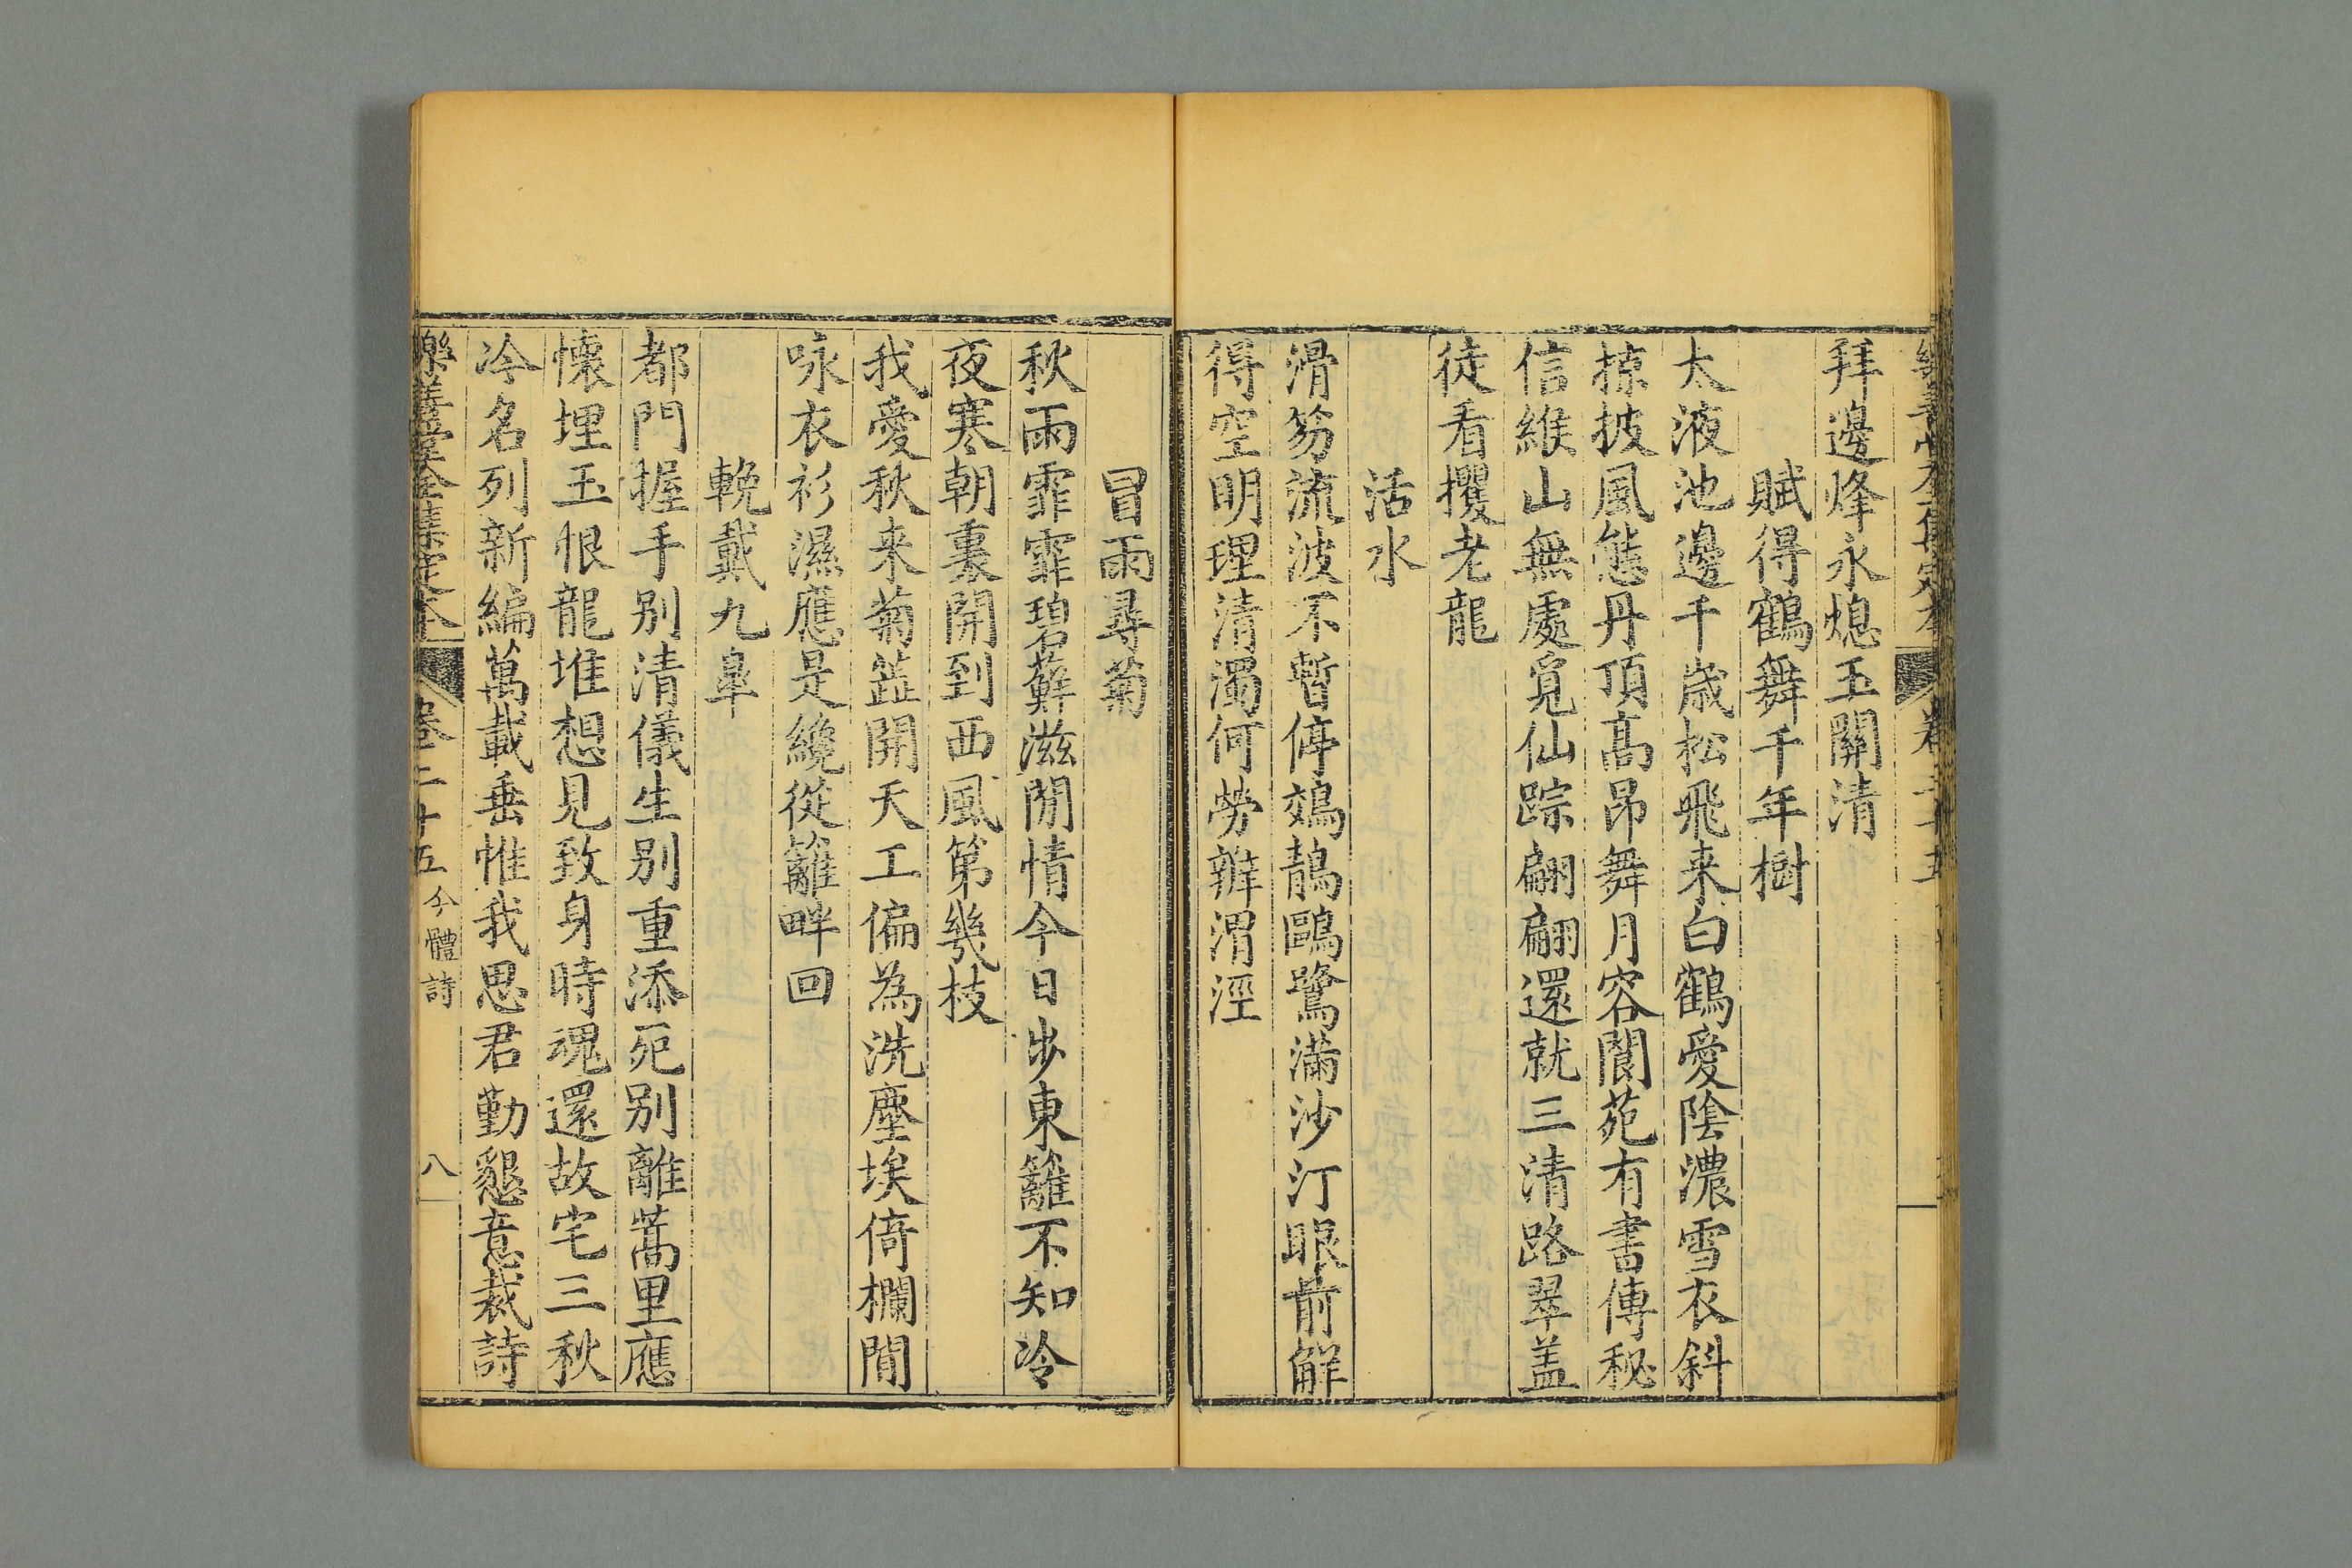 拜邊烽永熄玉關清
賦得鶴舞千年樹
太液池邊千歲松飛来白鶴愛陰濃雪衣斜
掠披風態丹頂高昂舞月容閬苑有書傳秘
信緱山無處覓仙踪翩翩還就三清路翠盖
徒看攫老龍
活水
滑笏流波不暫停鵁鶄鷗鷺滿沙汀眼前觧
得空明理清濁何勞辨渭涇
冒雨尋菊
秋雨霏霏碧蘚滋閒情今日步東籬不知冷
夜寒朝裏開到西風第幾枝
我愛秋来菊蕋開天工偏為洗塵埃倚欄閒
咏衣衫濕應是纔從籬畔回
輓戴九臯
都門握手别清儀生别重添死别離蒿里應
懷埋玉恨龍堆想見致身時魂還故宅三秋
冷名列新編萬載垂惟我思君勤懇意裁詩
樂善堂全集定本 卷二十五 今體詩 八